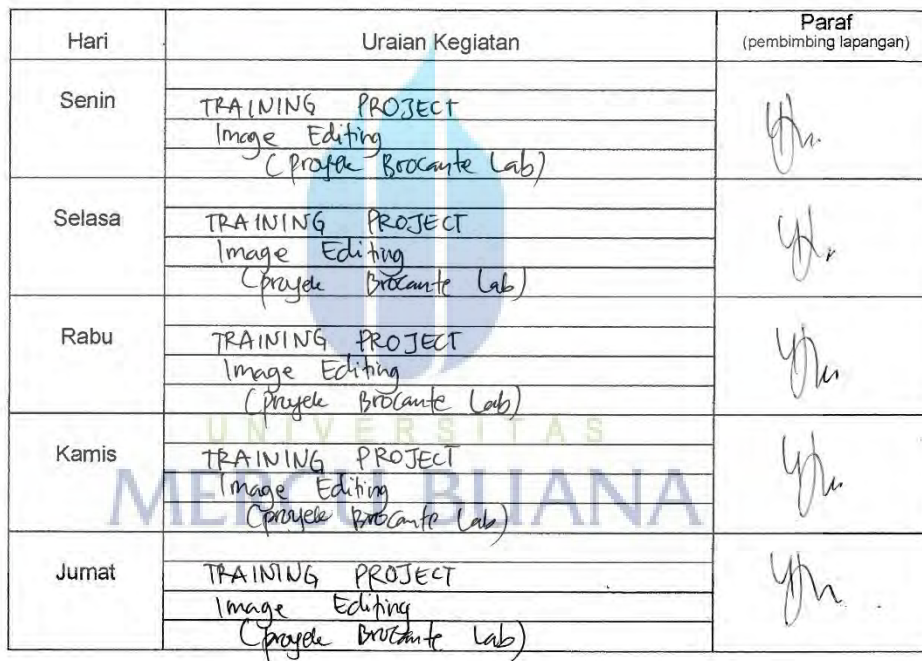 Hari Uraian Kegiatan Paraf
(pembimbing lapangan)
Senin
TRAINING PROJECT
Image Editing
(Proyek Brocante Lab)
Selasa
TRAINING PROJECT
Image Editing
(proyek Brocante Lab)
Rabu
TRAINING PROJECT
Image Editing
(proyek Brocante Lab)
UNIVERSITAS
Kamis
TRAINING PROJECT
Image Editing
MERCU BUANA
(proyek Brocante Lab)
Jumat
TRAINING PROJECT
Image Editing
(proyek Brocante Lab)